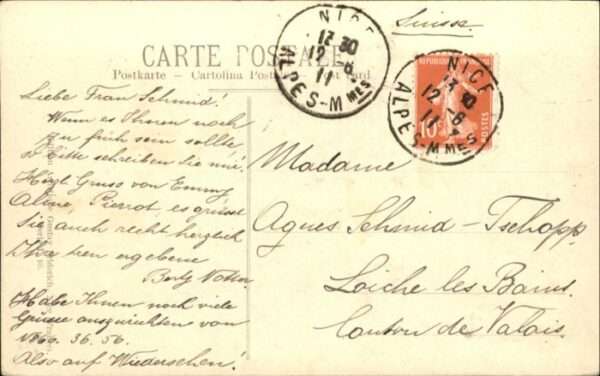 Suisse
CARTE POSTALE
Postkarte — Cartolina Post
NICE
13 30
12 -6
11
ALPES-MMES
NICE
13 30
12 -6
11
ALPES-MMES
10c
POSTES
Liebe Frau Schmid!
Wenn es Ihnen noch
zu früh sein sollte
so bitte schreiben Sie mir.
Herzl Gruss von Emmy
Aline, Pierrot, es grüsst
Sie auch recht herzlich
Ihre treu ergebene
Berty
Habe Ihnen noch viele
Grüsse ausgerichten von
36. 56.
Also auf Wiedersehen!
Madame
Agnes Schmid-Tschopp
Loiche les Bains.
Canton de Valais.